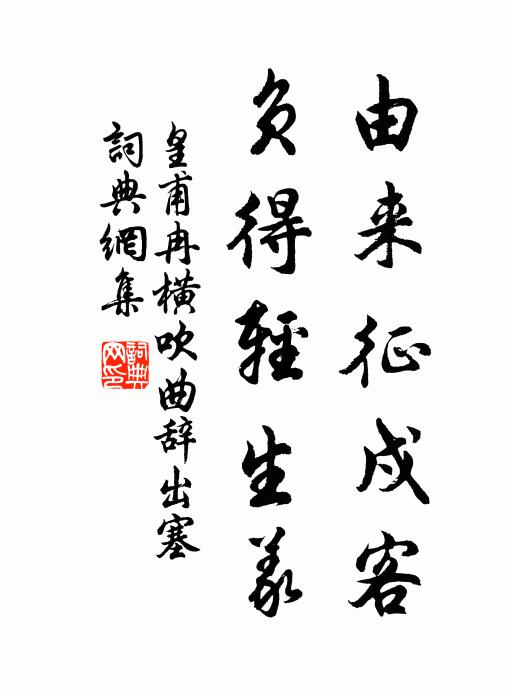 由来征戍客
负得輕生義
皇甫冉横吹曲辞出塞
詞典網集
詞典网印